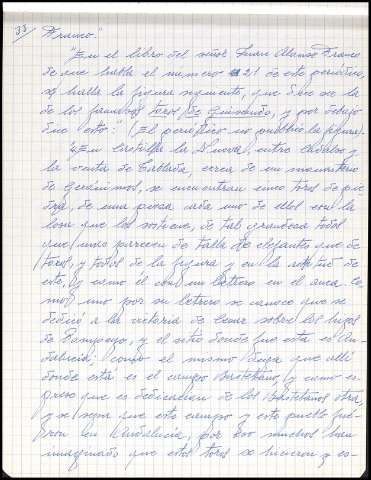 33/ Franco."
"En el libro del señor Juan Alonso Franco
de que habla el número 21 de este periódico,
se halla la figura siguiente, que dice ser la
de los famosos toros de Guisando, y por debajo
dice esto: " (El periódico no publica la figura).
"En Castilla la Nueva, entre Cadalso y
la venta de Tablada, cerca de un monasterio
de Gerónimos, se encuentran cinco toros de pie
dra, de una pieza cada uno de ellos con la
losa que los sostiene, de tal grandeza todos
que más parecen de talle de elefantes que de
toros, y todos de la figura y en la
esto, y como él con un letrero en el anca. Co
mo uno por su letrero se conoce que se
dedicó a la victoria de César sobre los hijos
de Pompeyo, y el sitio donde fue esta es An
dalucía; como el mismo diga que allí
donde está es el campo Bastetano, y como ex
preso que es dedicación de los Bastetanos otra,
y se sepa que este campo y este pueblo fue
ron en Andalucía, por eso muchos han
imaginado que estos toros se hicieron y es-